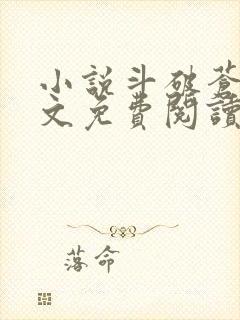 小說斗破蒼
文免費閱讀
落命